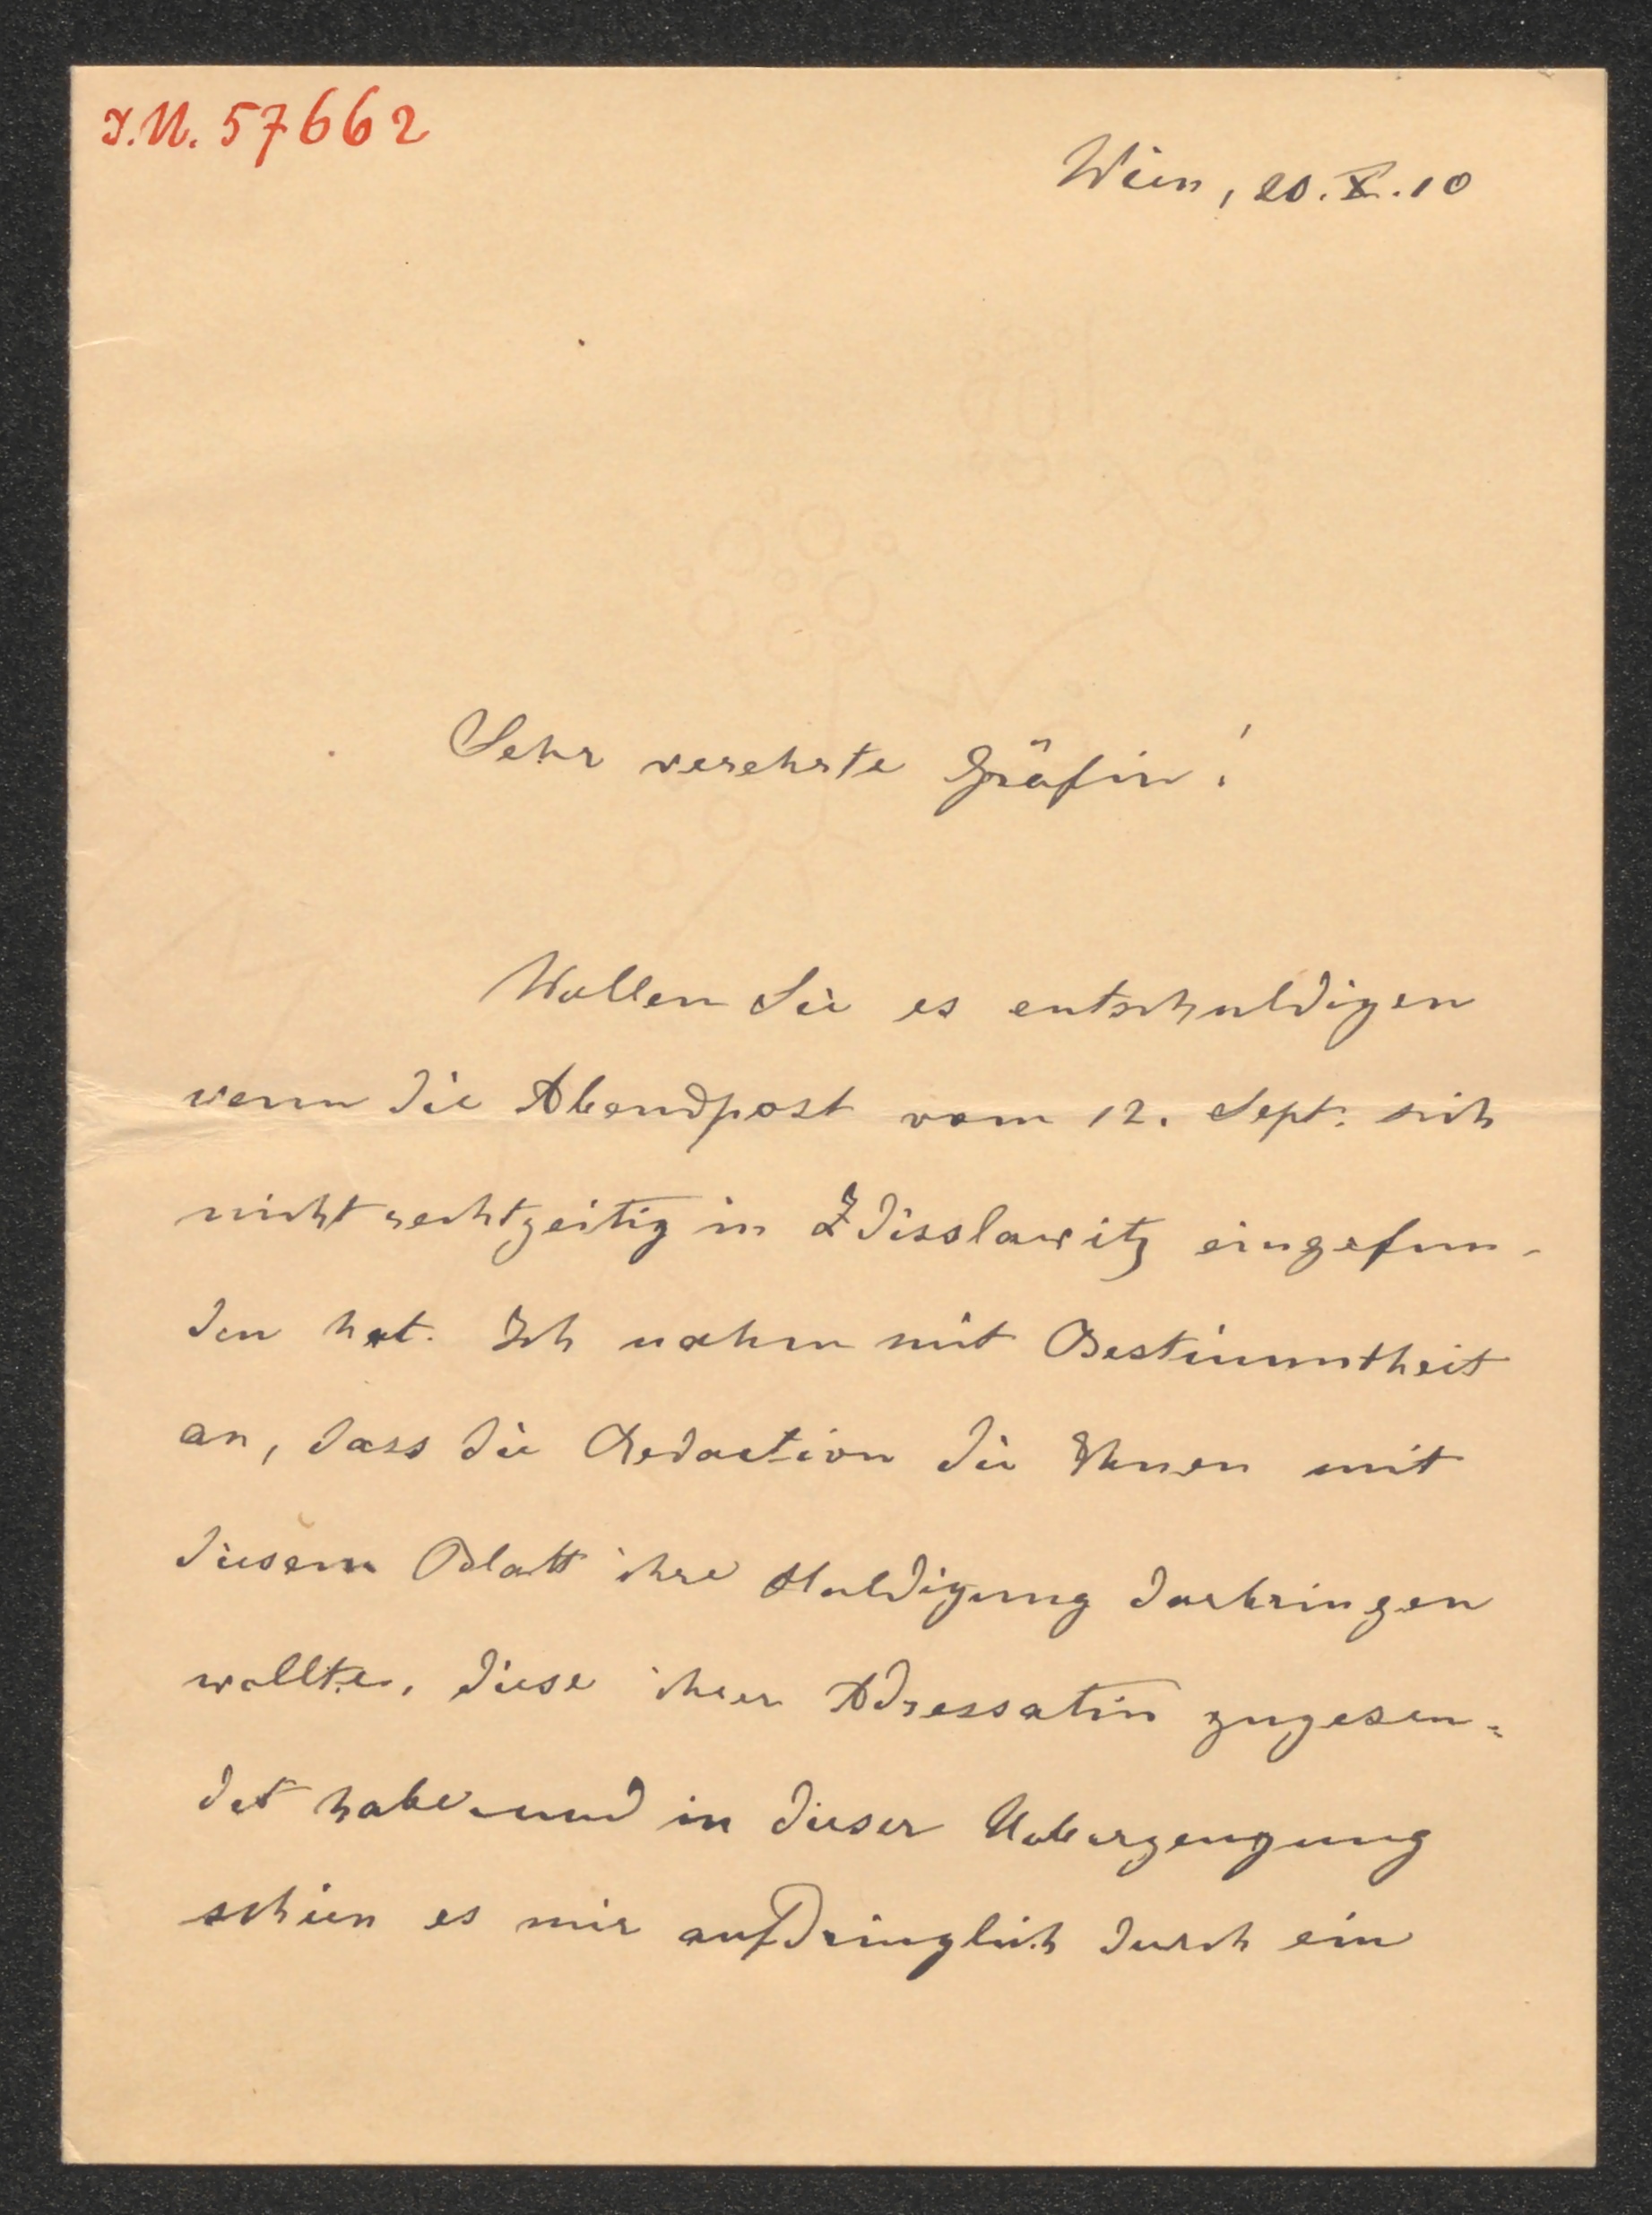 I.N. 57662
Wien, 20. X. 10
Sehr verehrte Gräfin!
Wollen Sie es entschuldigen
wenn die Abendpost vom 12. Sept. sich
nicht rechtzeitig in Zdisslawitz eingefun-
den hat. Ich nahm mit Bestimmtheit
an, dass die Redaction die Ihnen mit
diesem Blatt ihre Huldigung darbringen
wollte, diese ihrer Adressatin zugesen-
det habe und in dieser Ueberzeugung
schien es mir aufdringlich durch ein